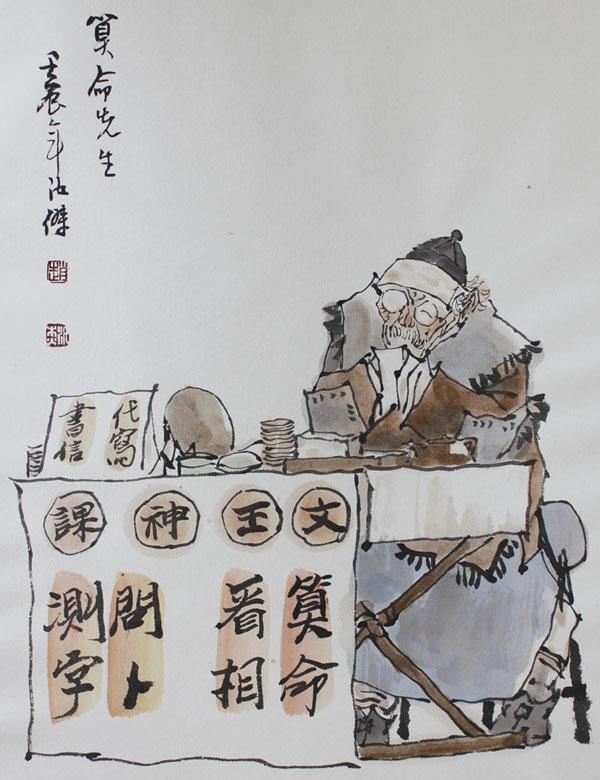 算命先生
壬辰年傑
代寫
書信
文王神課
算命
看相
問卜
測字